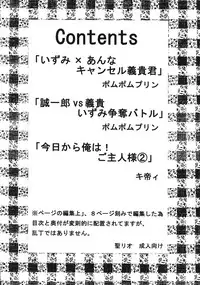 Contents
「いずみ×あんな
キャンセル義貴君」
ポムポムプリン
「誠一郎vs義貴
いずみ争奪バトル」
ポムポムプリン
「今日から俺は!
ご主人様②」
キ帝ィ
※ページの編集上、8ページ刻みで編集した為
目次と奥付が変則的に配置されてますが、
乱丁ではありません。
聖リオ 成人向け